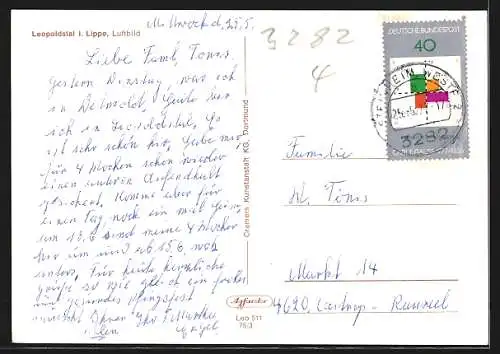 Leopoldstal i. Lippe, Luftbild
25.5.
Liebe Faml. Töns
Gestern Dienstag, war ich
in Detmold, heute bin
ich in Leopoldstal. Es
ist sehr schön hier. Habe mir
für 4 Wochen schon wieder
einen anderen Aufenthalt
gesichert. Komme aber für
einen Tag noch ein mal
am 15.6. sind meine 4 Wochen
hier um und ab 15.6. wo
anders. Für heute herzliche
Grüße so wie gleich ein frohes
und gesundes Pfingstfest
wünscht Ihnen Ihr
Engel
Cramers Kunstanstalt KG, Dortmund
3282
4
DEUTSCHE BUNDESPOST
40
3282
Familie
Töns
Markt 14
4620 Castrop-Rauxel
Leo 511
75/3